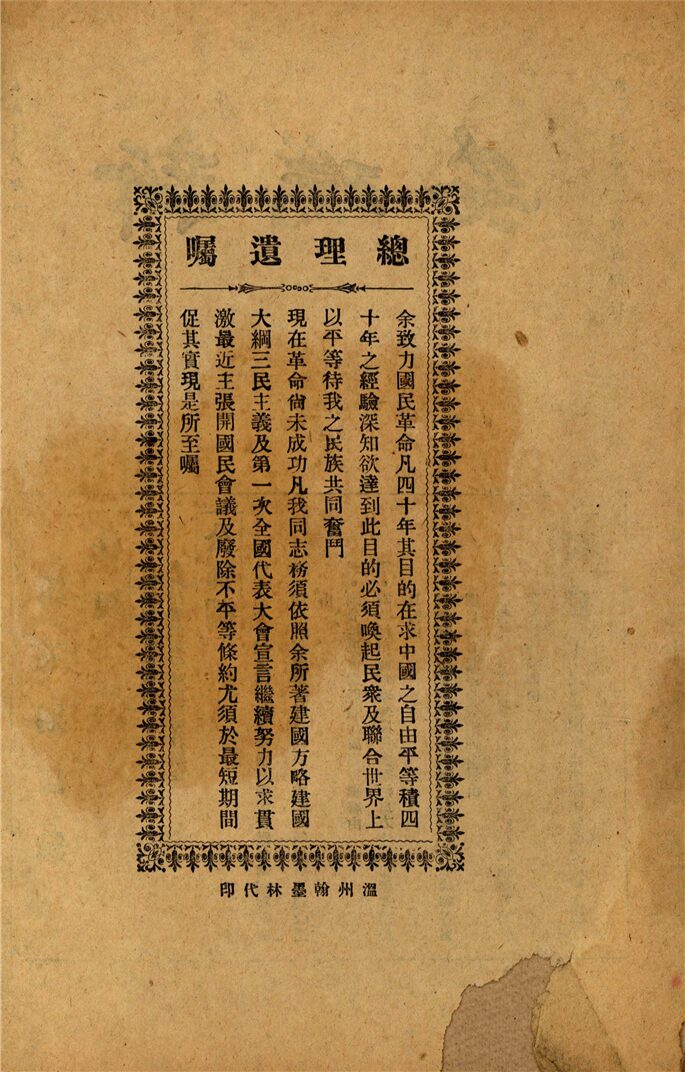 總理遺囑
余致力國民革命凡四十年其目的在求中國之自由平等積四
十年之經驗深知欲達到此目的必須喚起民衆及聯合世界上
以平等待我之民族共同奮鬥
現在革命尙未成功凡我同志務須依照余所著建國方略建國
大綱三民主義及第一次全國代表大會宣言繼續努力以求貫
激最近主張開國民會議及廢除不平等條約尤須於最短期間
促其實現是所至囑
溫州翰墨林代印